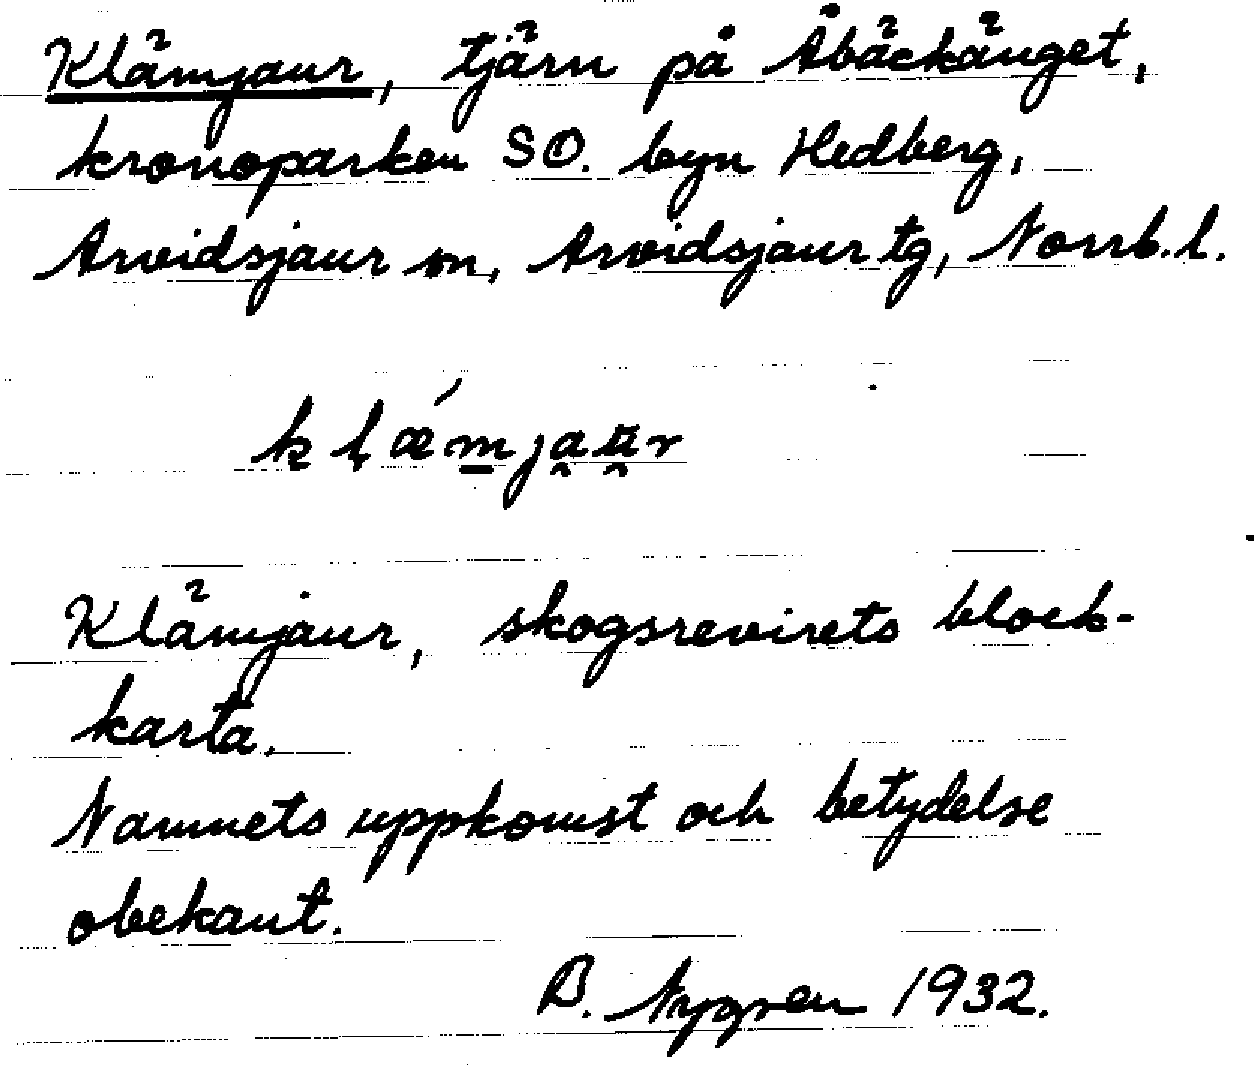 Klämjaur, tjärn på Åbäckänget,
kronoparken SO. byn Hedberg,
Arvidsjaur sn, Arvidsjaur tg, Norrb. l.
klæ´mjaur
Klämjaur, skogsrevirets block-
karta.
Namnets uppkomst och betydelse
obekant.
B. Nygren 1932.